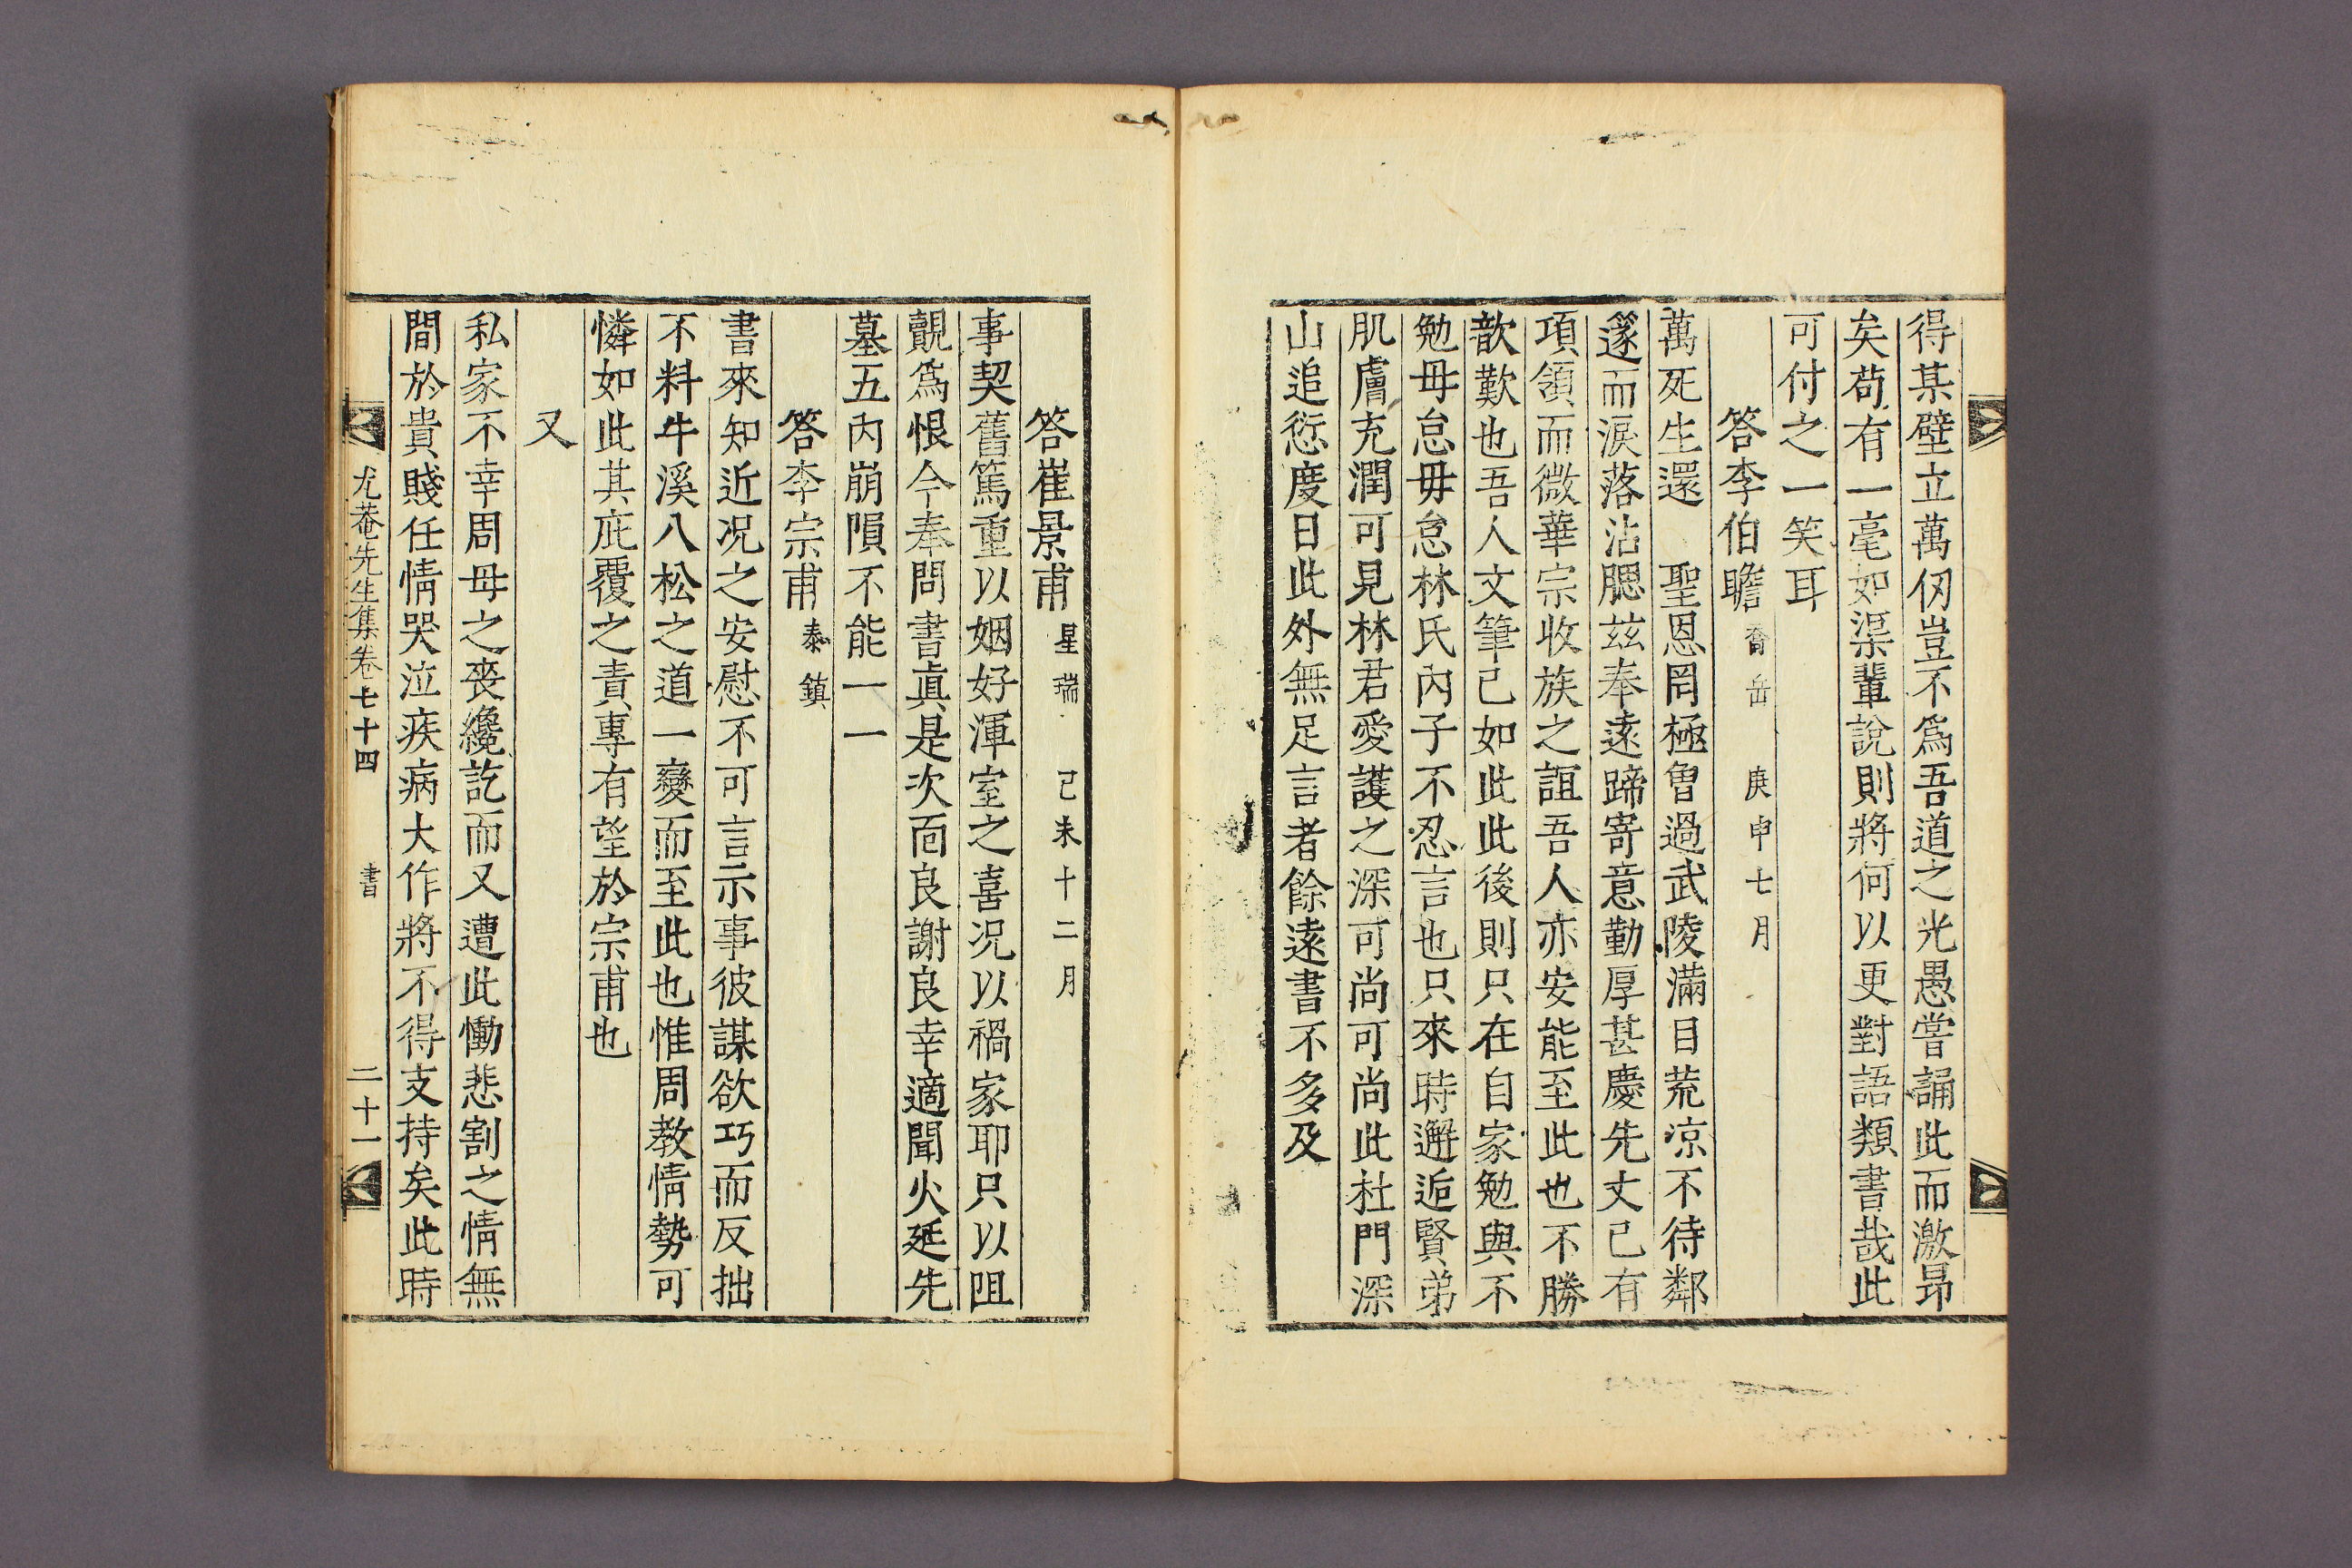 得某壁立萬仞豈不爲吾道之光愚嘗誦此而激昂
矣苟有一毫如渠輩說則將何以更對語類書哉此
可付之一笑耳
答李伯瞻 喬岳 庚申七月
萬死生還 聖恩罔極曾過武陵滿目荒凉不待鄰
篴而淚落沾腮玆奉遠蹄寄意勤厚甚慶先丈已有
項領而微華宗收族之誼吾人亦安能至此也不勝
歆歎也吾人文筆已如此此後則只在自家勉與不
勉毋怠毋怠林氏內子不忍言也只來時邂逅賢弟
肌膚充潤可見林君愛護之深可尚可尚此杜門深
山追愆度日此外無足言者餘遠書不多及
答崔景甫 星瑞 己未十二月
事契舊篤重以姻好渾室之喜况以禍家耶只以阻
覿爲恨今奉問書眞是次面良謝良幸適聞火延先
墓五內崩隕不能一一
答李宗甫 泰鎮
書來知近况之安慰不可言示事彼謀欲巧而反拙
不料牛溪八松之道一變而至此也惟周教情勢可
憐如此其庇覆之責專有望於宗甫也
又
私家不幸周母之喪纔訖而又遭此慟悲割之情無
間於貴賤任情哭泣疾病大作將不得支持矣此時
尤菴先生集卷七十四 書 二十一